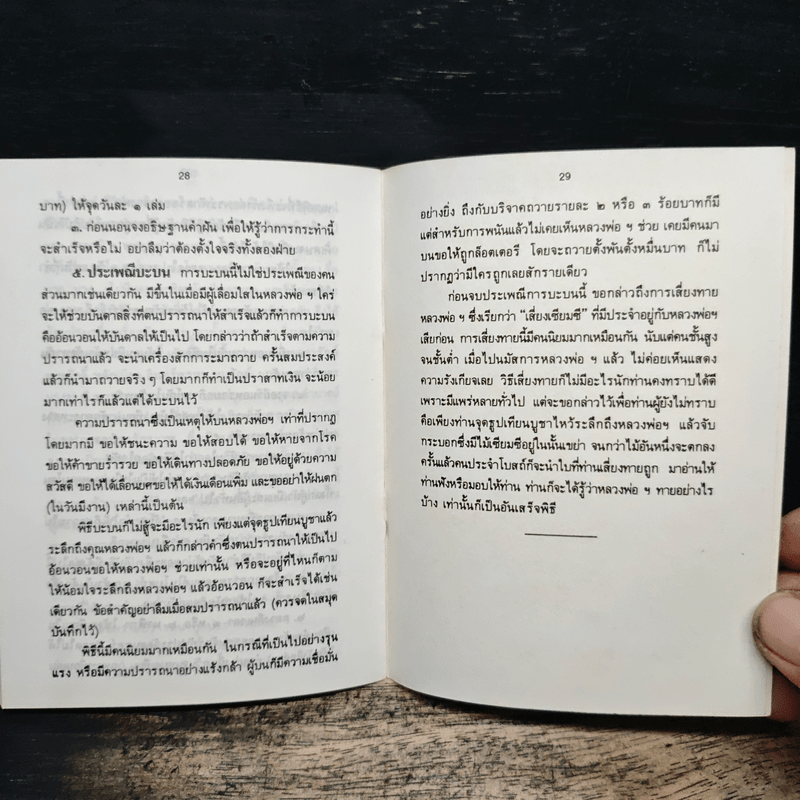 28
บาท) ให้จุดวันละ ๑ เล่ม
๓. ก่อนนอนจงอธิษฐานคำฝัน เพื่อให้รู้ว่าการกระทำนี้
จะสำเร็จหรือไม่ อย่าลืมว่าต้องตั้งใจจริงทั้งสองฝ่าย
๕. ประเพณีบะบน การบะบนนี้ไม่ใช่ประเพณีของคน
ส่วนมากเช่นเดียวกัน มีขึ้นในเมื่อมีผู้เลื่อมใสในหลวงพ่อ ฯ ใคร่
จะให้ช่วยบันดาลสิ่งที่ตนปรารถนาให้สำเร็จแล้วก็ทำการบะบน
คืออ้อนวอนให้บันดาลให้เป็นไป โดยกล่าวว่าถ้าสำเร็จตามความ
ปรารถนาแล้ว จะนำเครื่องสักการะมาถวาย ครั้นสมประสงค์
แล้วก็นำมาถวายจริง ๆ โดยมากก็ทำเป็นปราสาทเงิน จะน้อย
มากเท่าไรก็แล้วแต่ได้บะบนไว้
ความปรารถนาซึ่งเป็นเหตุให้บนหลวงพ่อฯ เท่าที่ปรากฏ
โดยมากมี ขอให้ชนะความ ขอให้สอบได้ ขอให้หายจากโรค
ขอให้ค้าขายร่ำรวย ขอให้เดินทางปลอดภัย ขอให้อยู่ด้วยความ
สวัสดี ขอให้ได้เลื่อนยศขอให้ได้เงินเดือนเพิ่ม และขออย่าให้ฝนตก
(ในวันมีงาน) เหล่านี้เป็นต้น
พิธีบะบนก็ไม่สู้จะมีอะไรนัก เพียงแต่จุดธูปเทียนบูชาแล้ว
ระลึกถึงคุณหลวงพ่อฯ แล้วก็กล่าวคำซึ่งตนปรารถนาให้เป็นไป
อ้อนวอนขอให้หลวงพ่อฯ ช่วยเท่านั้น หรือจะอยู่ที่ไหนก็ตาม
ให้น้อมใจระลึกถึงหลวงพ่อฯ แล้วอ้อนวอน ก็จะสำเร็จได้เช่น
เดียวกัน ข้อสำคัญอย่าลืมเมื่อสมปรารถนาแล้ว (ควรจดในสมุด
บันทึกไว้)
พิธีนี้มีคนนิยมมากเหมือนกัน ในกรณีที่เป็นไปอย่างรุน
แรง หรือมีความปรารถนาอย่างแรงกล้า ผู้บนก็มีความเชื่อมั่น
29
อย่างยิ่ง ถึงกับบริจาคถวายรายละ ๒ หรือ ๓ ร้อยบาทก็มี
แต่สำหรับการพนันแล้วไม่เคยเห็นหลวงพ่อ ฯ ช่วย เคยมีคนมา
บนขอให้ถูกล็อตเตอรี่ โดยจะถวายตั้งพันตั้งหมื่นบาท ก็ไม่
ปรากฏว่ามีใครถูกเลยสักรายเดียว
ก่อนจบประเพณีการบะบนนี้ ขอกล่าวถึงการเสี่ยงทาย
หลวงพ่อ ฯ ซึ่งเรียกว่า “เสี่ยงเซียมซี” ที่มีประจำอยู่กับหลวงพ่อฯ
เสียก่อน การเสี่ยงทายนี้มีคนนิยมมากเหมือนกัน นับแต่คนชั้นสูง
จนชั้นต่ำ เมื่อไปนมัสการหลวงพ่อ ฯ แล้ว ไม่ค่อยเห็นแสดง
ความรังเกียจเลย วิธีเสี่ยงทายก็ไม่มีอะไรนักท่านคงทราบได้ดี
เพราะมีแพร่หลายทั่วไป แต่จะขอกล่าวไว้เพื่อท่านผู้ยังไม่ทราบ
คือเพียงท่านจุดธูปเทียนบูชาไหว้ระลึกถึงหลวงพ่อฯ แล้วจับ
กระบอกซึ่งมีไม้เซียมซีอยู่ในนั้นเขย่า จนกว่าไม้อันหนึ่งจะตกลง
ครั้นแล้วคนประจำโบสถ์ก็จะนำใบที่ท่านเสี่ยงทายถูก มาอ่านให้
ท่านฟังหรือมอบให้ท่าน ท่านก็จะได้รู้ว่าหลวงพ่อ ฯ ทายอย่างไร
บ้าง เท่านั้นก็เป็นอันเสร็จพิธี